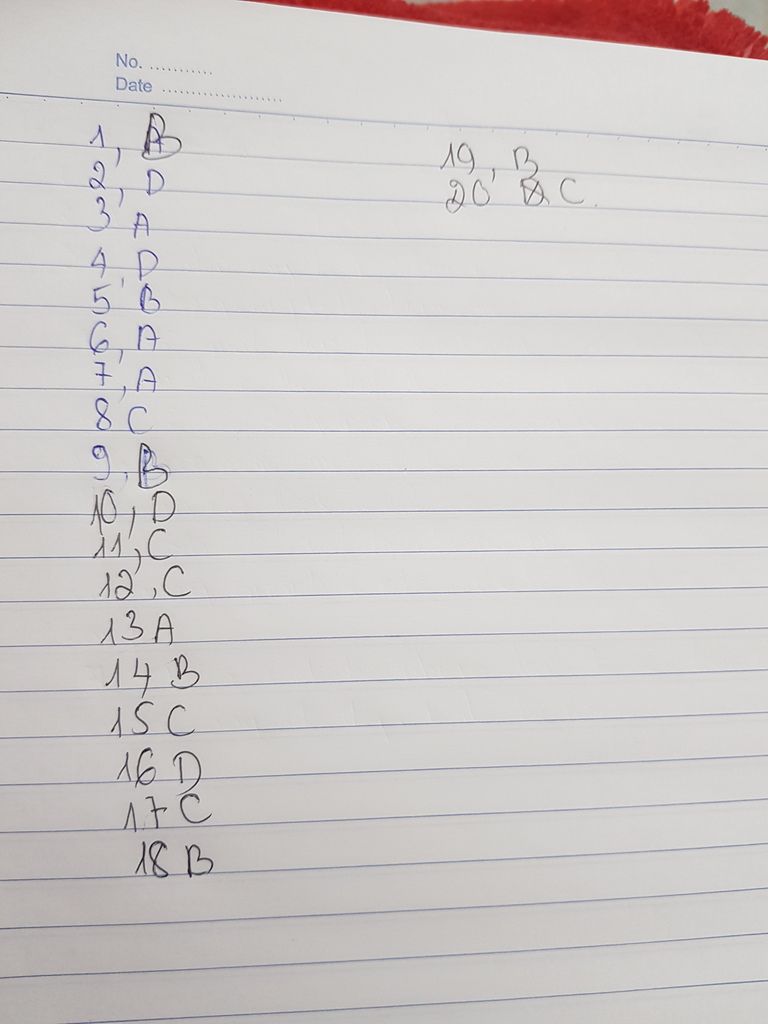 No. ...........
Date .....................
1, B
2, D
3, A
4, D
5, B
6, A
7, A
8 C
9, B
10, D
11, C
12, C
13 A
14 B
15 C
16 D
17 C
18 B
19, B
20 C.